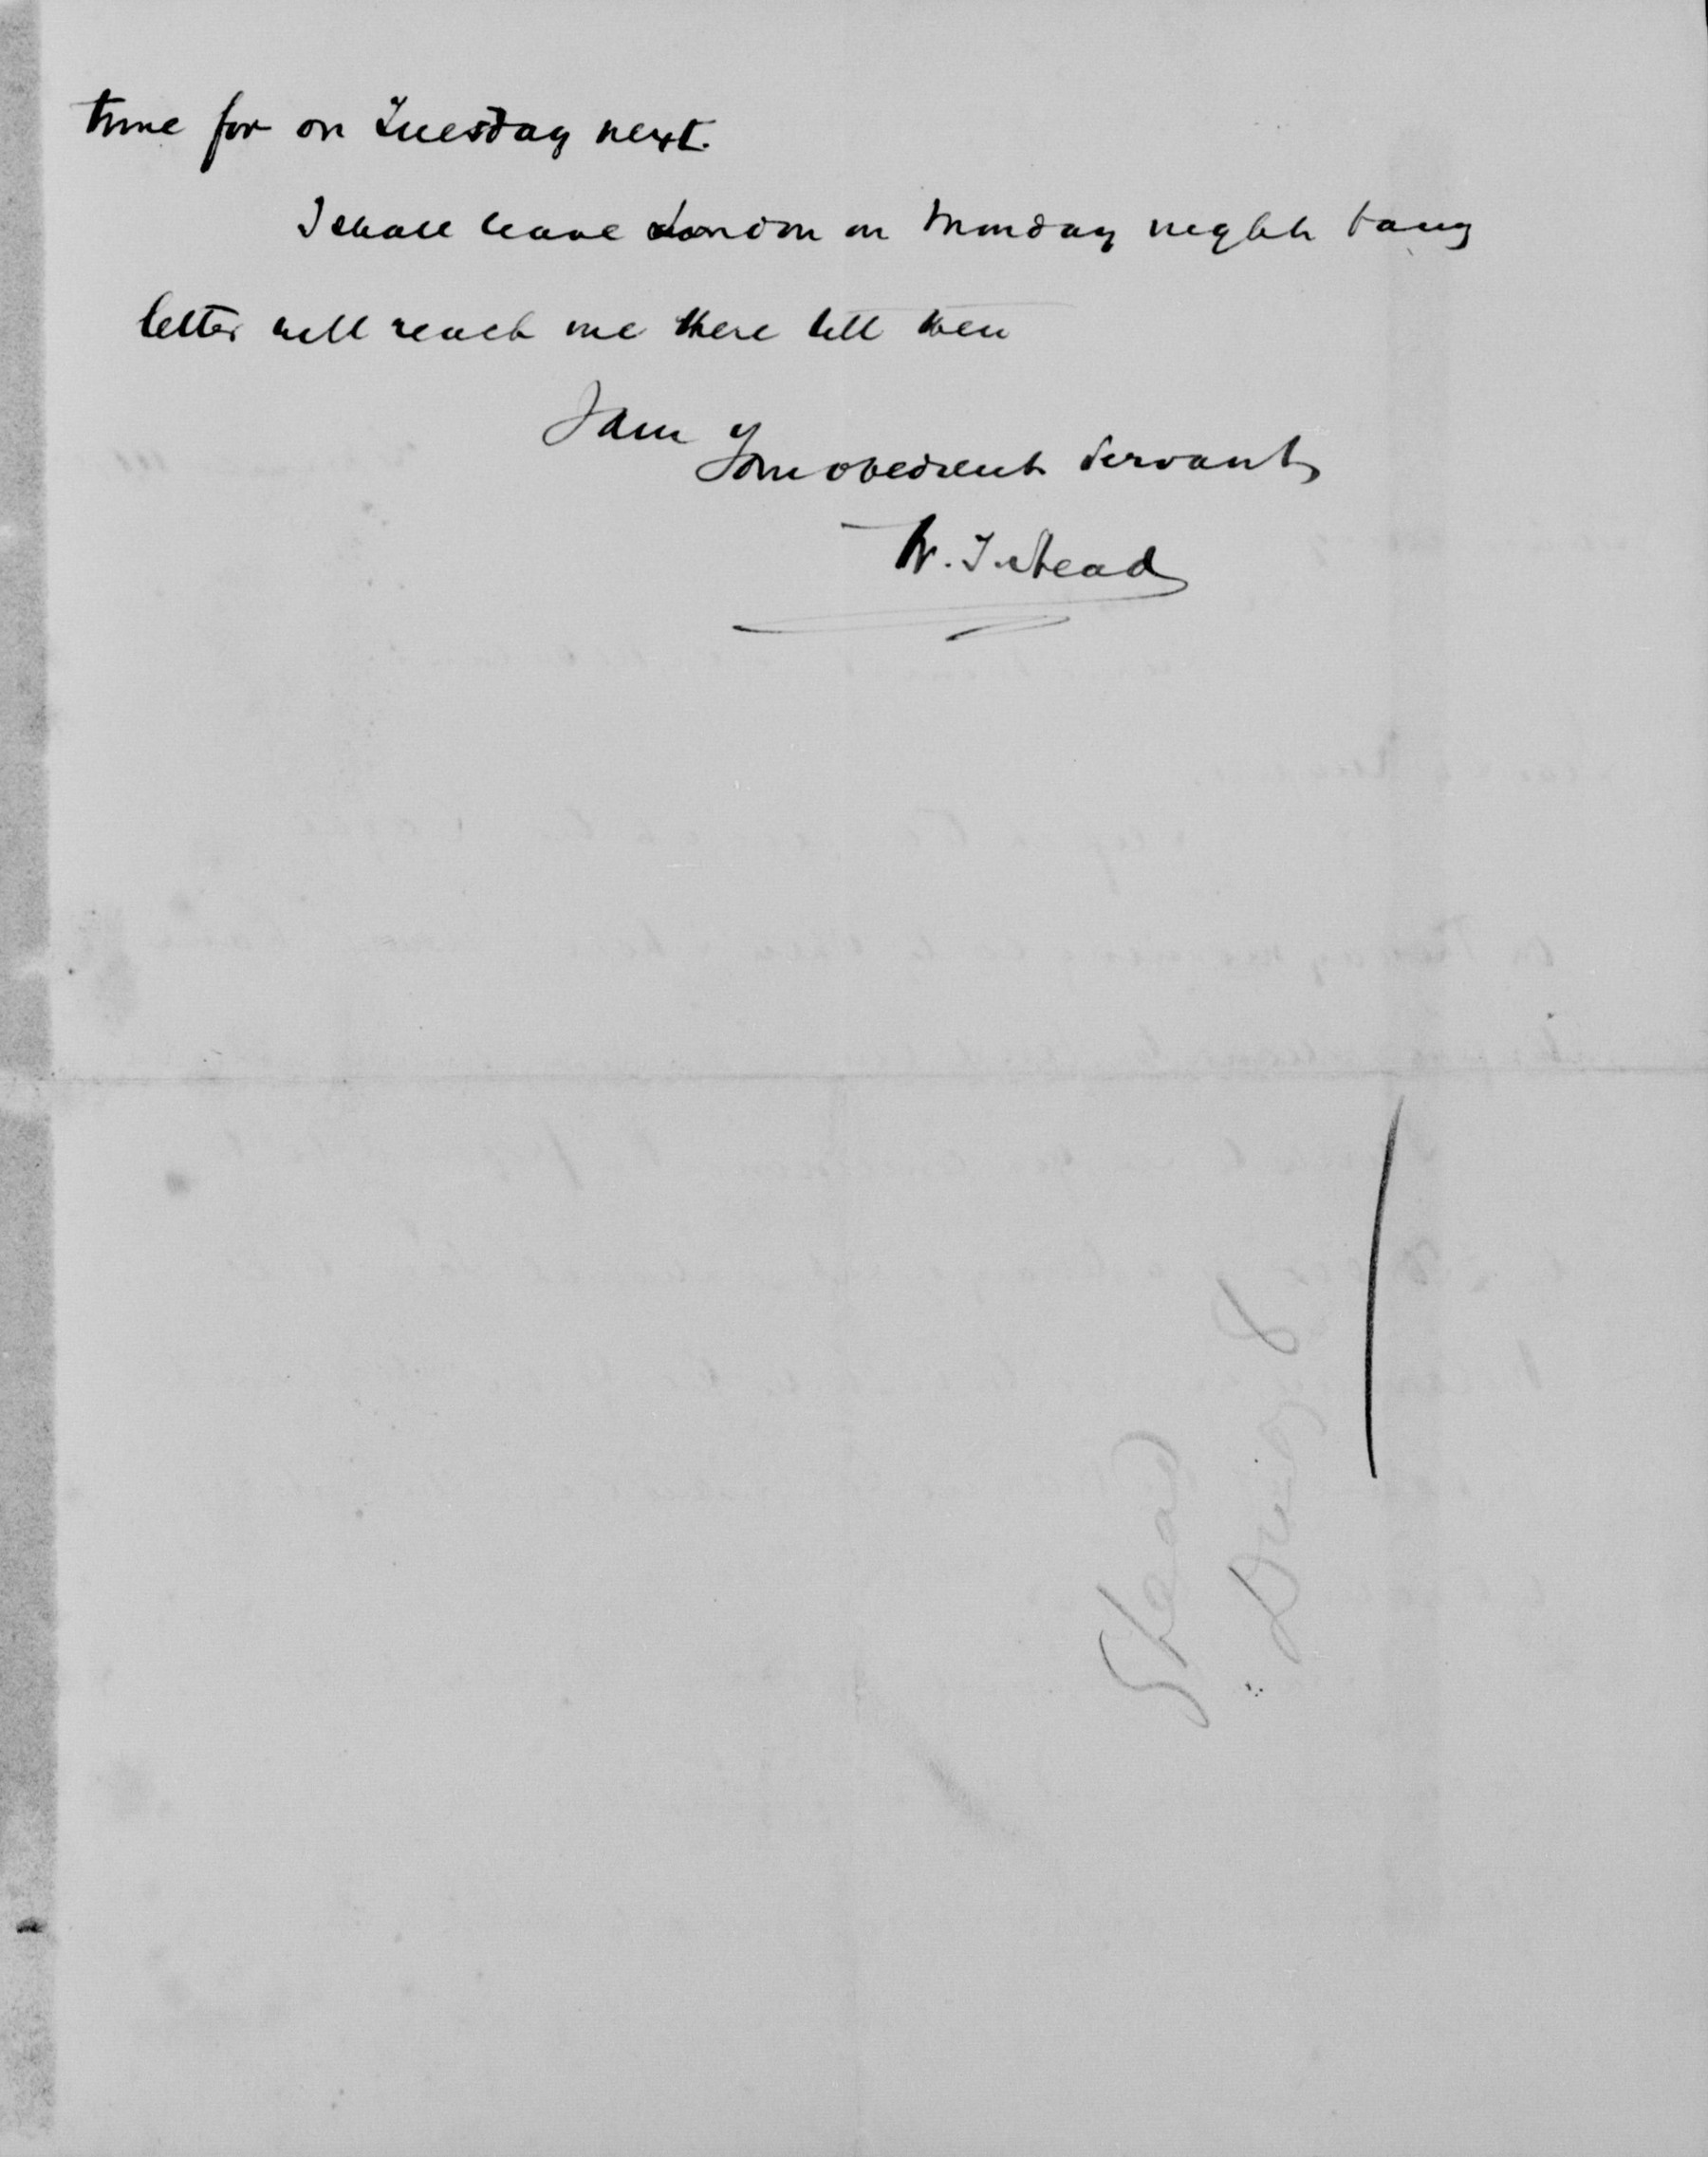 time for on Tuesday next.
I shall leave London on Monday night & any
letter will reach me there till then
I am
Your obedient servant
W. T. Stead
Stead